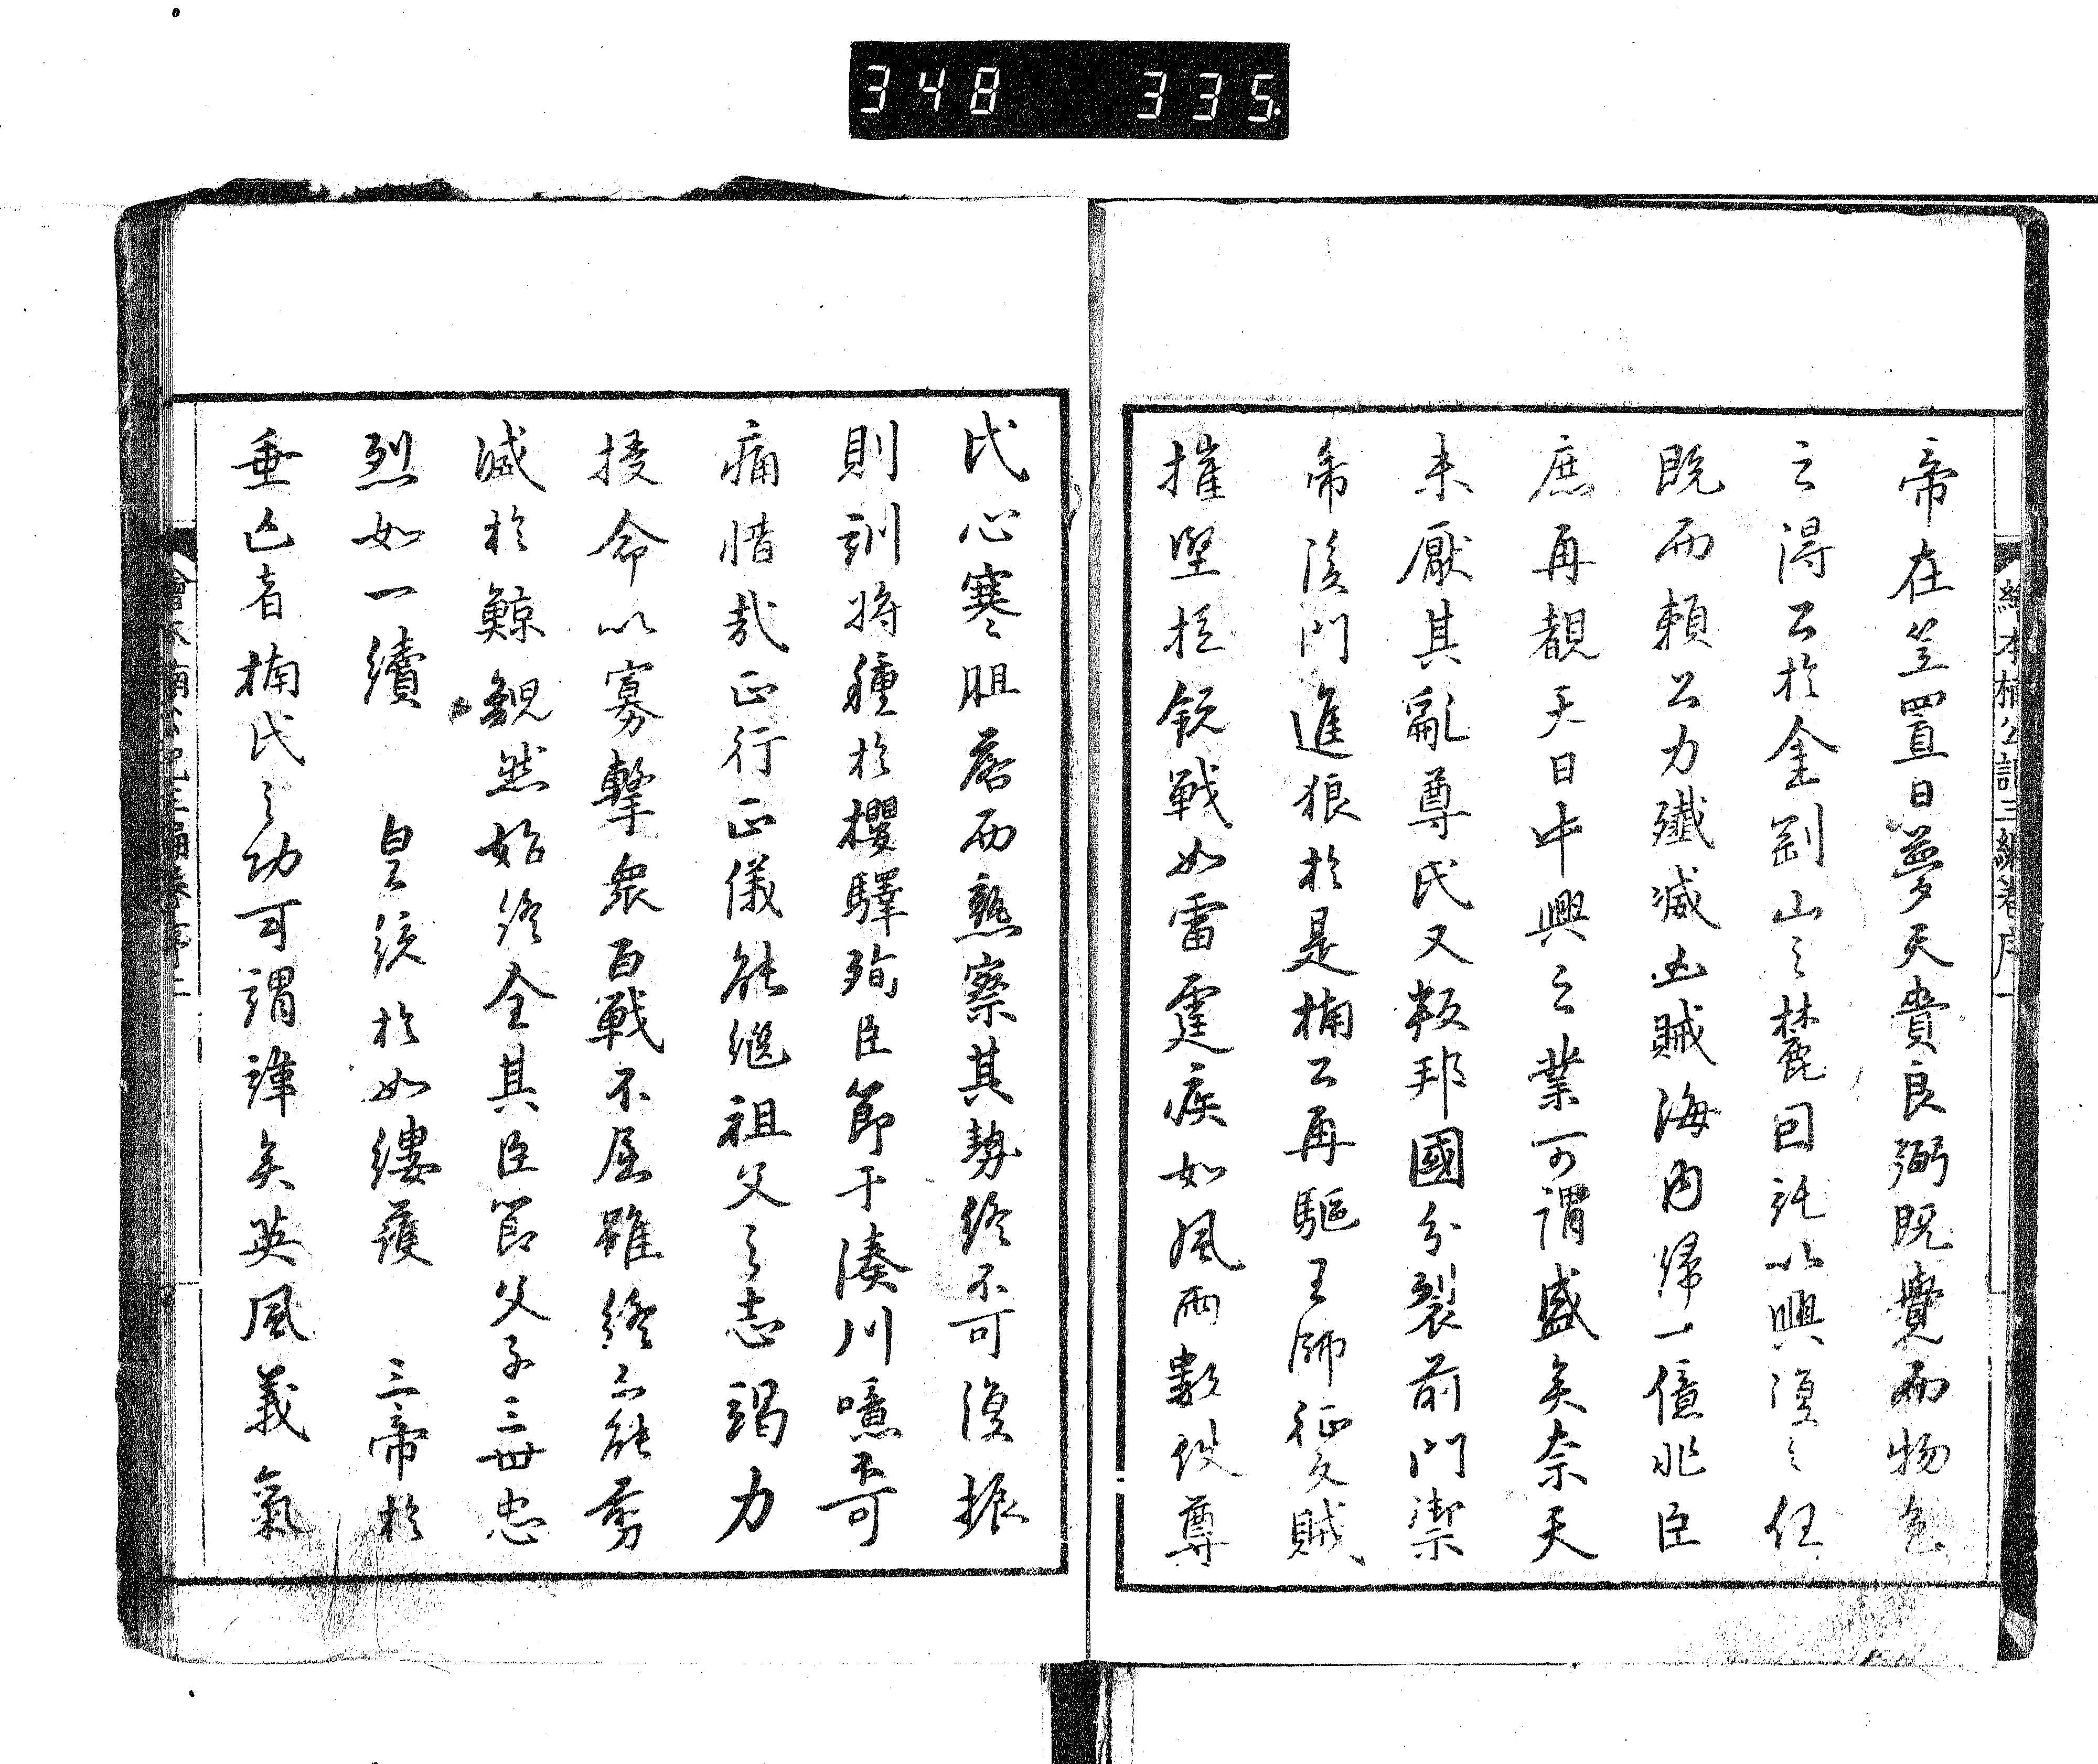 348 335
繪本楠公記三編卷序一
帝在笠置日夢天賚良弼既覺而物色
之得公於金剛山之麓因託以興復之任
既而頼公力殲滅凶賊海内歸一億兆臣
庶再覩天日中興之業可謂盛矣奈天
未厭其亂尊氏又叛邦國分裂前門禦
帝後門進狼於是楠公再驅王師征父賊
摧堅挫鋭戰如雷霆疾如風雨數佚尊
氏心寒胆落而熟察其勢終不可復振
則訓將種於櫻驛殉臣節于湊川噫可
痛惜哉正行正儀能繼祖父之志竭力
授命以寡撃衆百戰不屈雖終不能剪
滅於鯨鯢然始終全其臣節父子三世忠
烈如一續 皇統於如縷護 三帝於
垂亡者楠氏之功可謂偉矣英風義氣
繪本楠公記三編卷序二